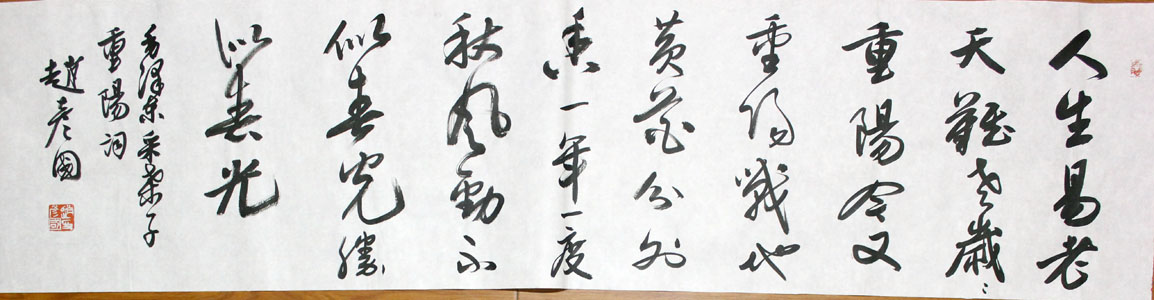 人生易老
天難老歲〻
重陽今又
重陽戰地
黃花分外
香一年一度
秋風勁不
似春光勝
似春光
毛澤東采桑子
重陽詞
趙彥國